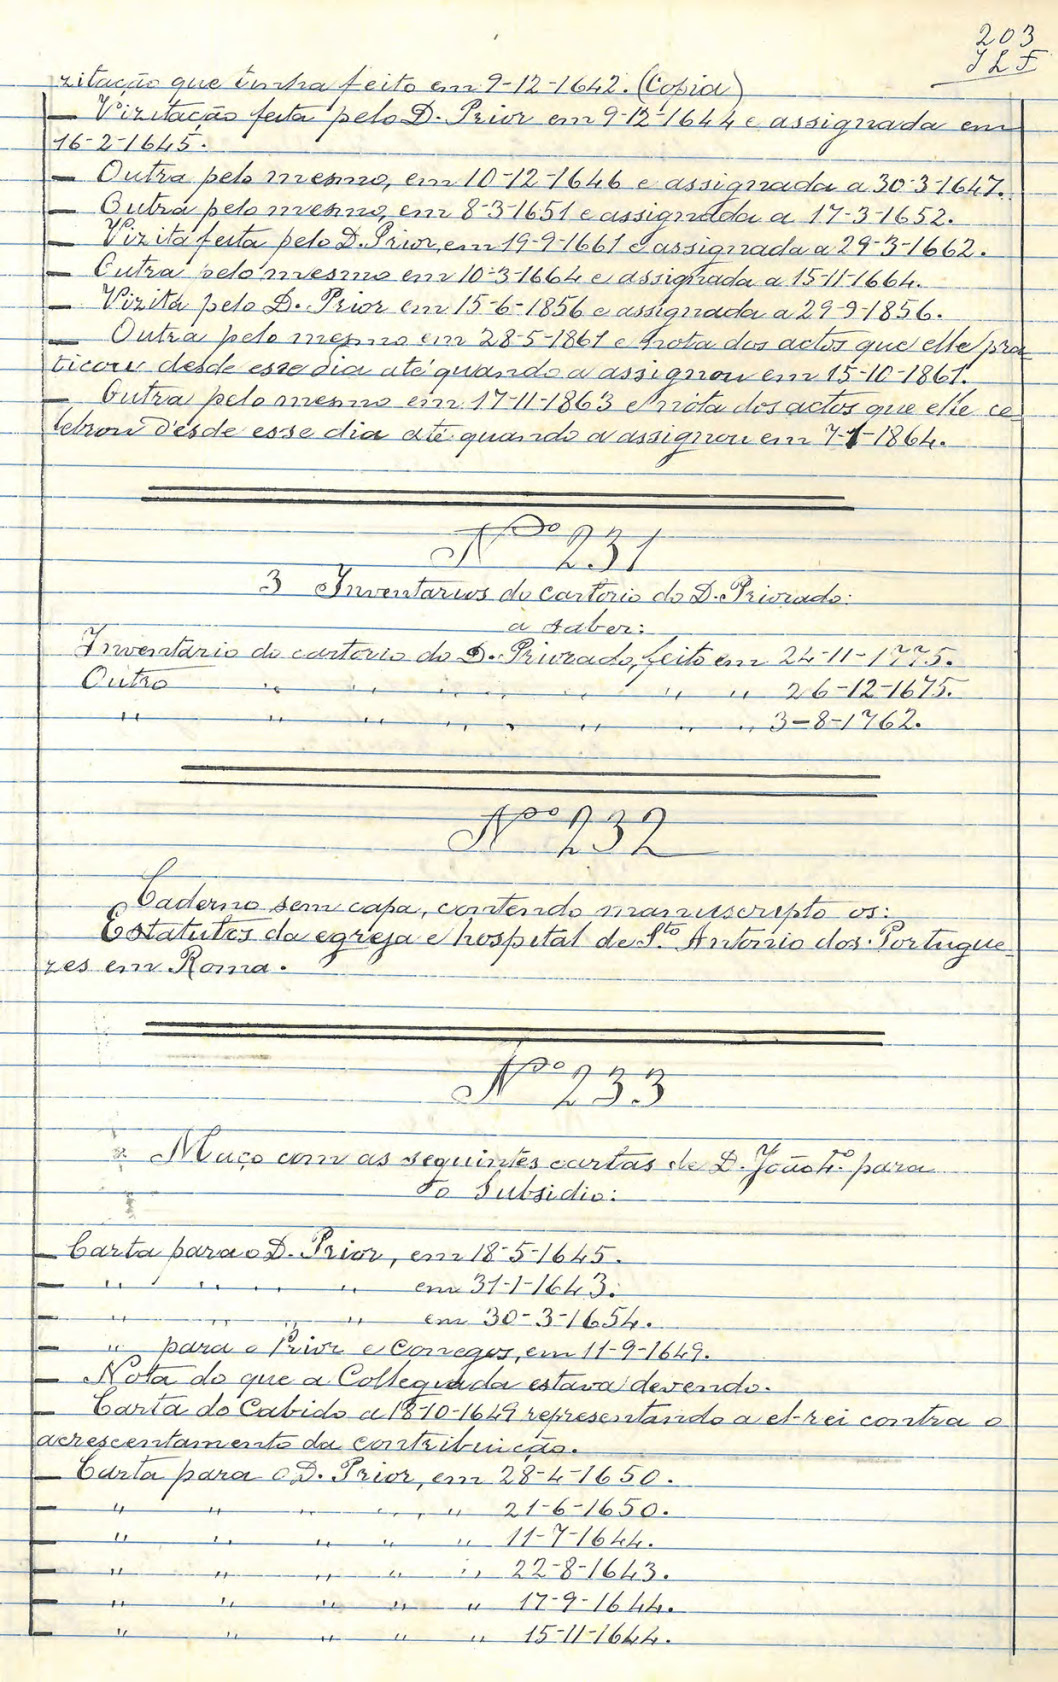 203
JLF
zitação que tinha feito em 9-12-1642. (Cópia)
— Vizitação feita pelo D. Prior em 9-12-1644 e assignada em
16-2-1645.
— Outra pelo mesmo, em 10-12-1646 e assignada a 30-3-1647.
— Outra pelo mesmo, em 8-3-1651 e assignada a 17-3-1652.
— Vizita feita pelo D. Prior, em 19-9-1661 e assignada a 29-3-1662.
— Outra pelo mesmo em 10-3-1664 e assignada a 15-11-1664.
— Vizita pelo D. Prior em 15-6-1856 e assignada a 29-9-1856.
— Outra pelo mesmo em 28-5-1861 e nota dos actos que elle pra-
ticou desde esse dia até quando a assignou em 15-10-1861.
— Outra pelo mesmo em 17-11-1863 e nota dos actos que elle ce-
lebrou desde esse dia até quando a assignou em 7-1-1864.
Nº 231
3 Inventarios do cartorio do D. Priorado:
a saber:
Inventário do cartorio do D. Priorado, feito em 24-11-1775.
Outro " " " " " " " 26-12-1675.
" " " " " " " " 3-8-1762.
Nº 232
Caderno sem capa, contendo manuscripto os:
Estatutos da egreja e hospital de Sto António dos Portugue-
zes em Roma.
Nº 233
Maço com as seguintes cartas de D. João 4º para
o Subsidio:
— Carta para o D. Prior, em 18-5-1645.
— " " " " em 31-1-1643.
— " " " " em 30-3-1654.
— " para o Prior e Conegos, em 11-9-1649.
— Nota do que a Collegiada estava devendo.
— Carta do Cabido a 18-10-1649 representando a el-rei contra o
acrescentamento da contribuição.
— Carta para o D. Prior, em 28-4-1650.
— " " " " " 21-6-1650.
— " " " " " 11-7-1644.
— " " " " " 22-8-1643.
— " " " " " 17-9-1644.
— " " " " " 15-11-1644.